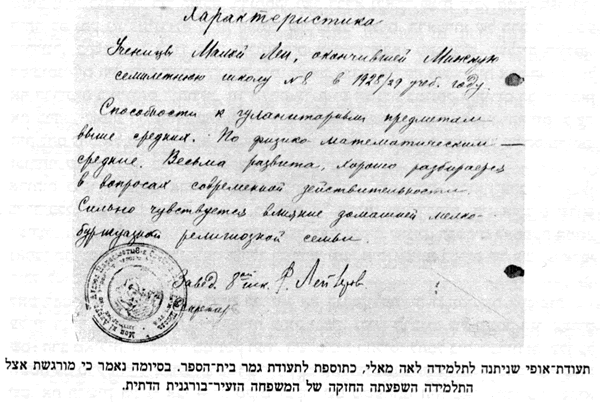 Характеристика
Ученицы Малой Леи, окончившей Минскую
семилетнюю школу №8 в 1928/29 учеб. году.
Способности к гуманитарным предметам
выше средних. По физико математическим —
средние. Весьма развита, хорошо разбирается
в вопросах современной действительности.
Сильно чувствуется влияние домашней мелко-
буржуазной религиозной семьи.
Завед. 8ой шк. Р.
Секретарь
תעודת־אופי שניתנה לתלמידה לאה מאלי, כתוספת לתעודת גמר בית־הספר. בסיומה נאמר כי מורגשת אצל
התלמידה השפעתה החזקה של המשפחה הזעיר־בורגנית הדתית.